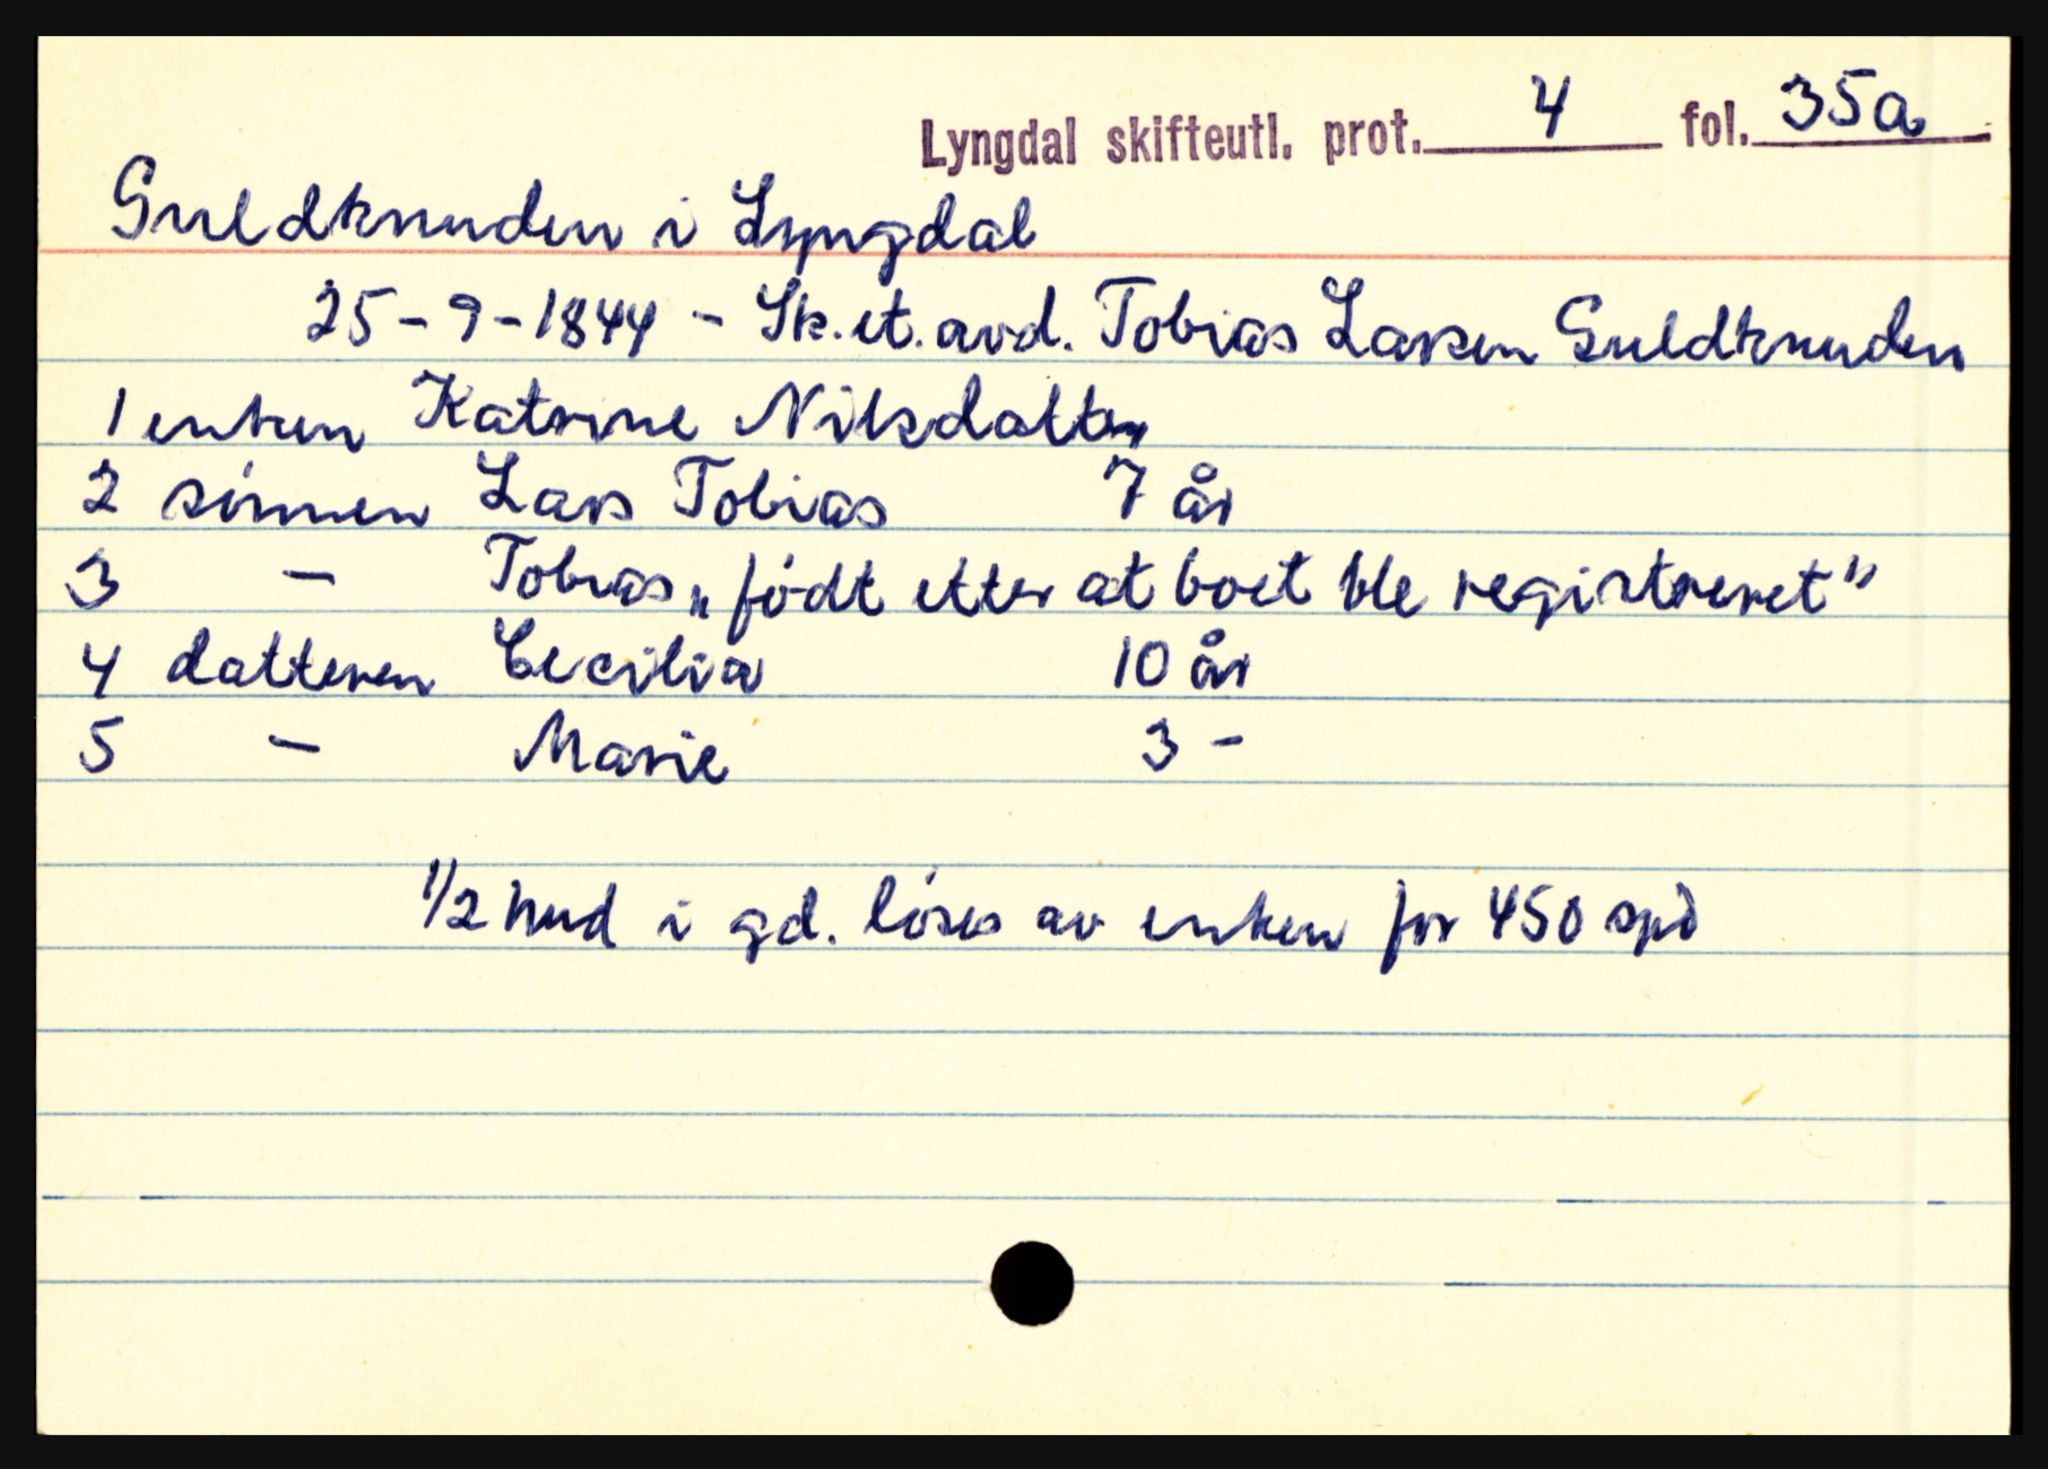 Lyngdal skifteutl. prot. 4 fol. 35a
Guldknuden i Lyngdal
25-9-1844 - Sk. et. avd. Tobias Larsen Guldknuden
1 enken Katrine Nilsdatter
2 sönnen Lars Tobias 7 år
3 - Tobias „födt etter at boet ble registreret"
4 datteren Cecilia 10 år
5 - Marie 3 -
1/2 hud i gd. löses av enken for 450 spd